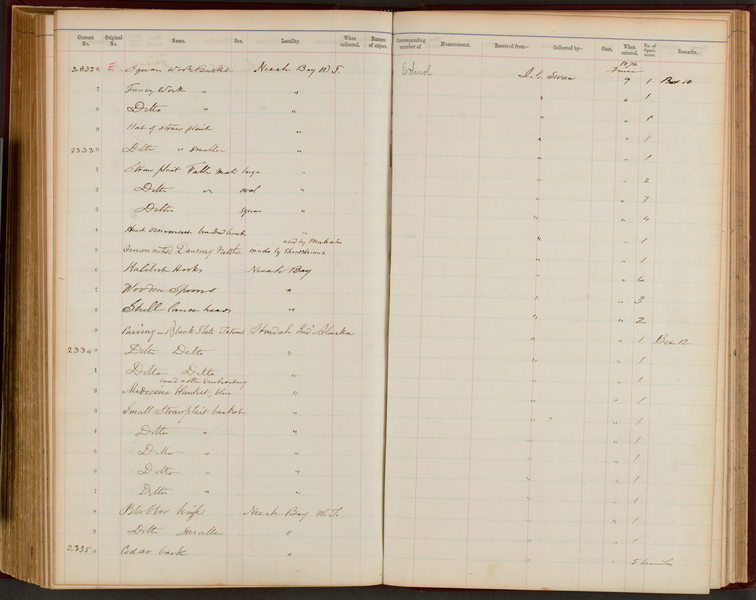 Current No. Original No. Name. Sex. Locality. When collected. Nature of object. Corresponding number of Measurement. Received from— Collected by— Cost. When entered. No. of Speci-mens. Remarks.
1876
June
E Square Work Basket Neeah Bay W.T. Ethnol J.G. Swan 9 1 Box 10
7 Fancy Work " " " " 1
8 Ditto " " " " 1
9 Hat of straw plait " " " 1
23330 Ditto " smaller " " " 1
1 Straw plait Table mats large " " " 2
2 Ditto " oval " " " 7
3 Ditto square " " " 4
4 Head ornament " " " 1
used by Makahs
5 Dancing Rattle made by " " 1
6 Halibut Hooks Neeah Bay " " 6
7 Wooden Spoons " " " 3
8 Shell lance heads " " " 2
9 Carving in Black Slate Totem Hydah Ind. Alaska " " 1 Box 12
23340 Ditto Ditto " " " 1
1 Ditto Ditto " " " 1
2 Medicine blanket, blue " " " 1
3 Small Straw plait basket " " " 1
4 Ditto " " " " 1
5 Ditto " " " " 1
6 Ditto " " " " 1
7 Ditto " " " " 1
8 Neeah Bay W.T. " " 1
9 Ditto smaller " " " 1
23350 Cedar bark " " " 5